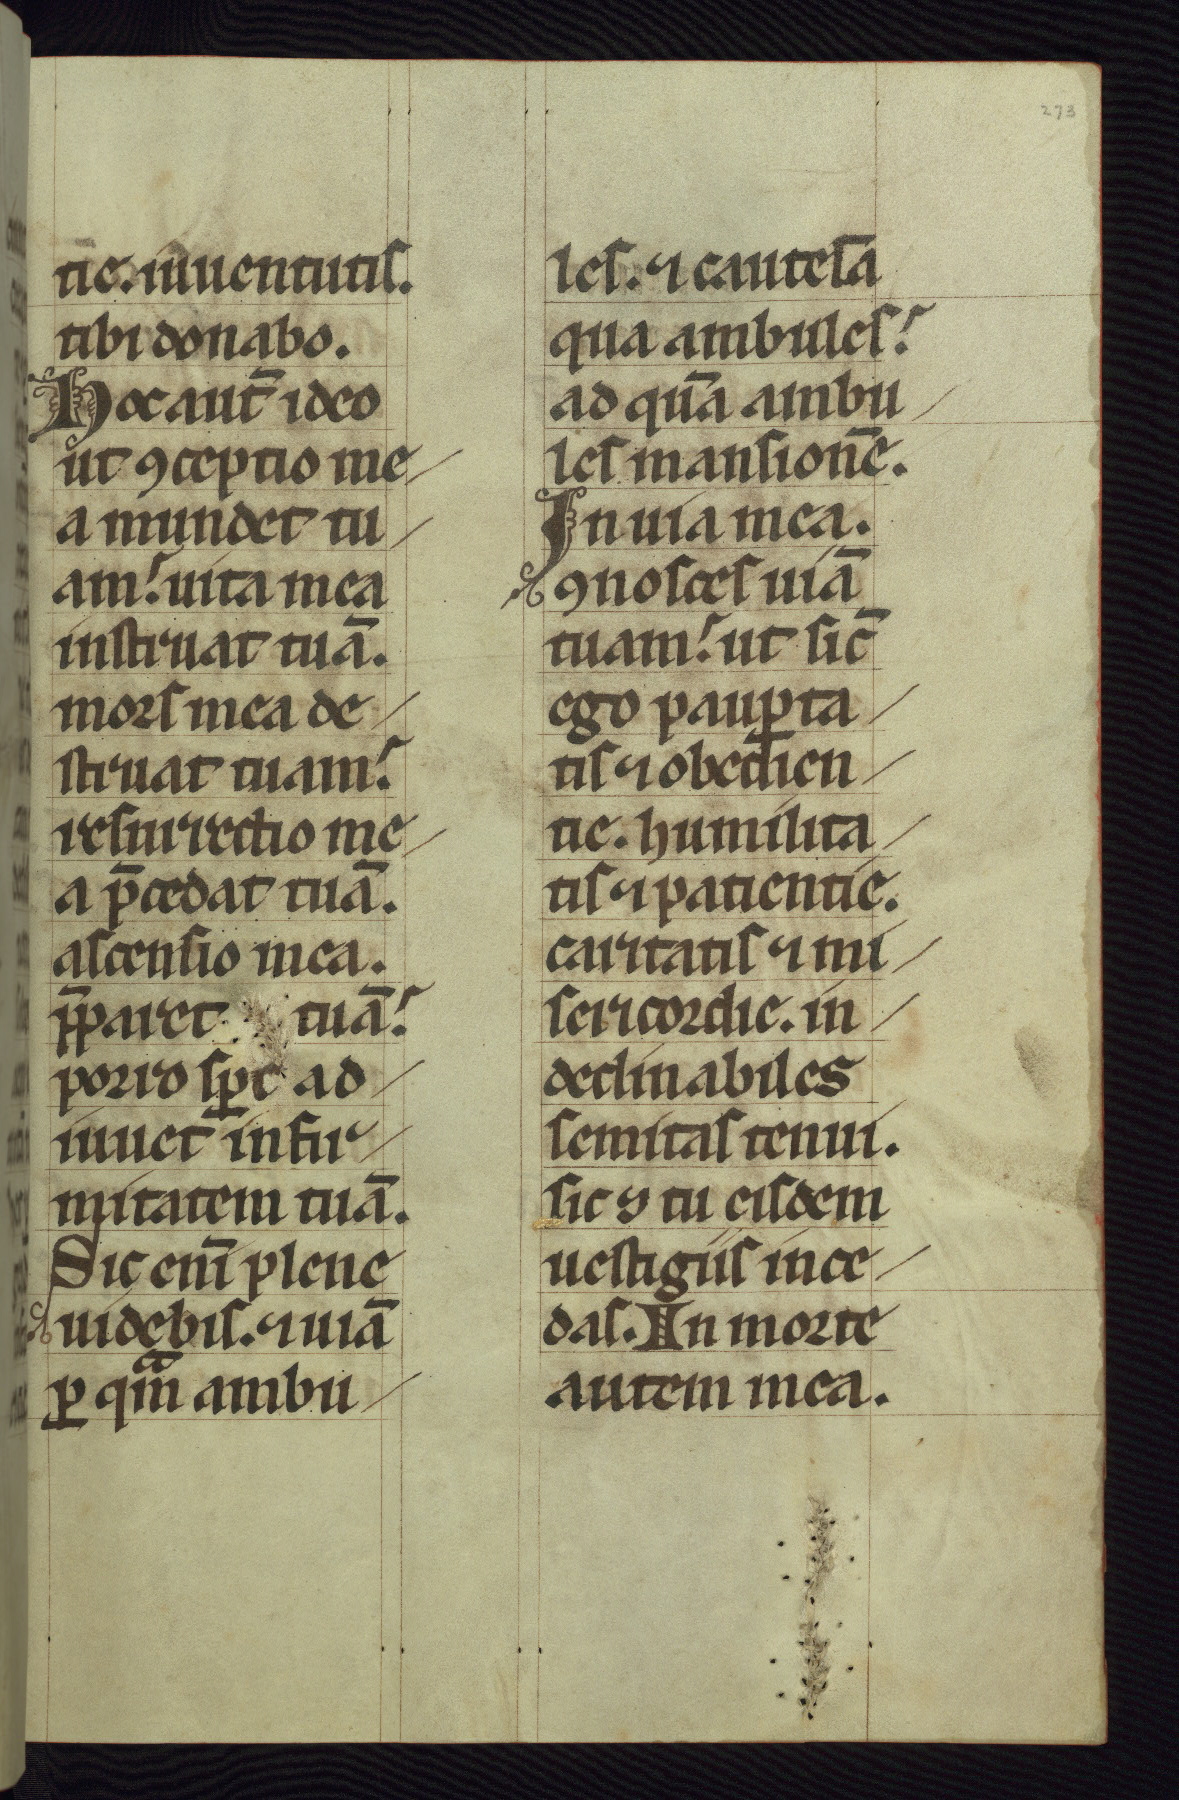 273
tie. iuuentutis.
tibi donabo.
Hoc aut̄ ideo
ut ꝯceptio me/
a mundet tu/
am. uita mea
instruat tuā.
mors mea de/
struat tuam.
resurrectio me/
a p̄cedat tuā.
ascensio mea.
p̄paret tuā.
porro ad/
iuuet infir/
mitatem tuā.
Sic eni̅ plene
uidebis. ⁊ uiā
ꝑ ambu/
les. ⁊ cautelā
qua ambules.
ad quā ambu/
les mansionē.
In uia mea.
ꝯnosces uiā
tuam. ut sic̄
ego pauꝑta/
tis ⁊ obedien/
tie. humilita/
tis ⁊ patientie.
caritatis ⁊ mi/
sericordie. in/
declinabiles
semitas tenui.
sic ⁊ tu eisdem
uestigiis ince/
das. In morte
autem mea.